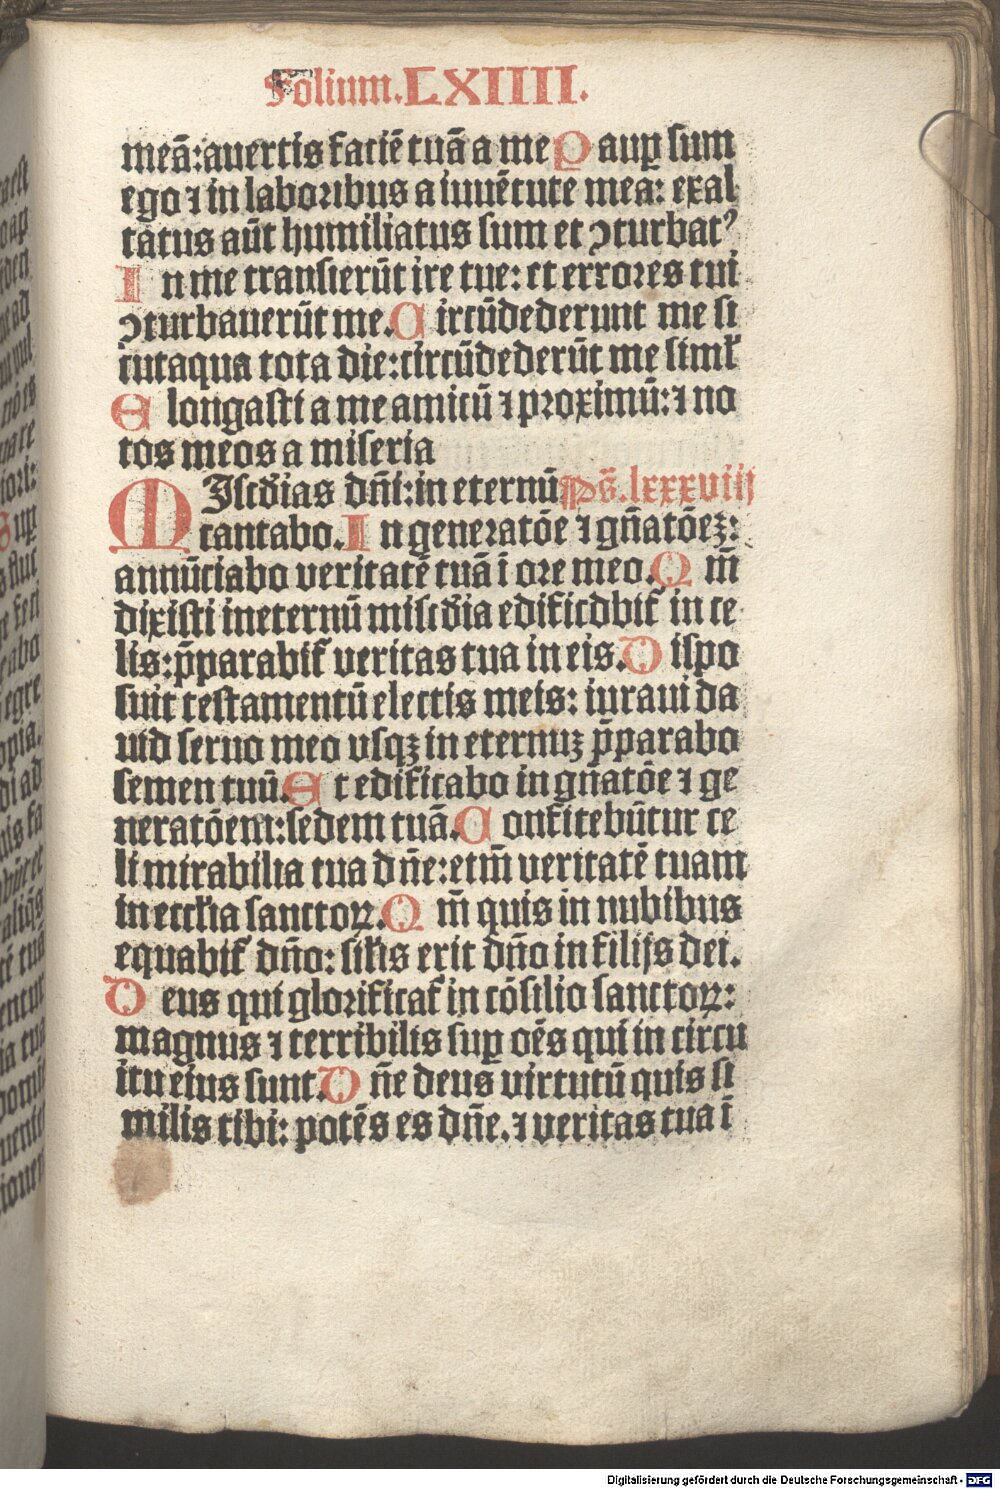 Folium.LXIIII.
meā:auertis faciē tuā a me Paup̲ sum
ego ⁊ in laboribus a iuuētute mea: exal
tatus aūt humiliatus sum et ↄturbatꝰ
In me transierūt ire tue: et errores tui
ↄturbauerūt me. Circūdederunt me si
cutaqua tota die:circūdederūt me siml̄
Elongasti a me amicū ⁊ proximū: ⁊ no
tos meos a miseria
MIscd̄ias dn̄i:in eternū Ps̄.lxxxviij
cantabo. In generatōe ⁊ gn̄atōeꝫ:
annūciabo veritatē tuā ī ore meo. Qm̄
dixisti ineternū miscd̄ia edificabit᷑ in ce
lis:p̄parabit᷑ veritas tua in eis. Dispo
suit testamentū electis meis: iuraui da
uid seruo meo vsqꝫ in eternuꝫ p̄parabo
semen tuū. Et edificabo in gn̄atōe ⁊ ge
neratōem:sedem tuā. Confitebūtur ce
li mirabilia tua dn̄e:etm̄ veritatē tuam
in eccl̄ia sanctoꝝ. Qm̄ quis in nubibus
equabit᷑ dn̄o: sil̄is erit dn̄o in filijs dei.
Deus qui glorificat᷑ in cōsilio sanctoꝝ:
magnus ⁊ terribilis sup̲ oēs qui in circu
itu eius sunt. Dn̄e deus virtutū quis si
milis tibi: potēs es dn̄e. ⁊ veritas tua ī
Digitalisierung gefördert durch die Deutsche Forschungsgemeinschaft - DFG